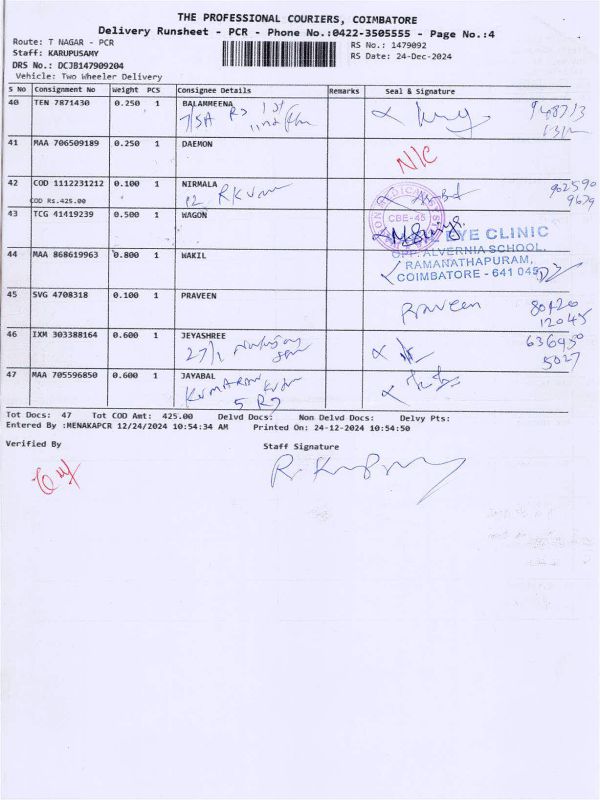 THE PROFESSIONAL COURIERS, COIMBATORE
Delivery Runsheet - PCR - Phone No.:0422-3505555 - Page No.:4
Route: T NAGAR - PCR
RS No.: 1479092
Staff: KARUPUSAMY
RS Date: 24-Dec-2024
DRS No.: DCJB147909204
Vehicle: Two Wheeler Delivery
S No Consignment No Weight PCS Consignee Details Remarks Seal & Signature
40 TEN 7871430 0.250 1 BALAMMEENA
41 MAA 706509189 0.250 1 DAEMON
N/C
42 COD 1112231212 0.100 1 NIRMALA
COD Rs.425.00
902590
9679
43 TCG 41419239 0.500 1 WAGON
CBE-45
EYE CLINIC
OPP. ALVERNIA SCHOOL,
44 MAA 868619963 0.800 1 WAKIL
RAMANATHAPURAM,
COIMBATORE - 641 045
45 SVG 4708318 0.100 1 PRAVEEN
Praveen
80420
12045
46 IXM 303388164 0.600 1 JEYASHREE
636950
5027
47 MAA 705596850 0.600 1 JAYABAL
Tot Docs: 47 Tot COD Amt: 425.00 Delvd Docs: Non Delvd Docs: Delvy Pts:
Entered By :MENAKAPCR 12/24/2024 10:54:34 AM Printed On: 24-12-2024 10:54:50
Verified By
Staff Signature